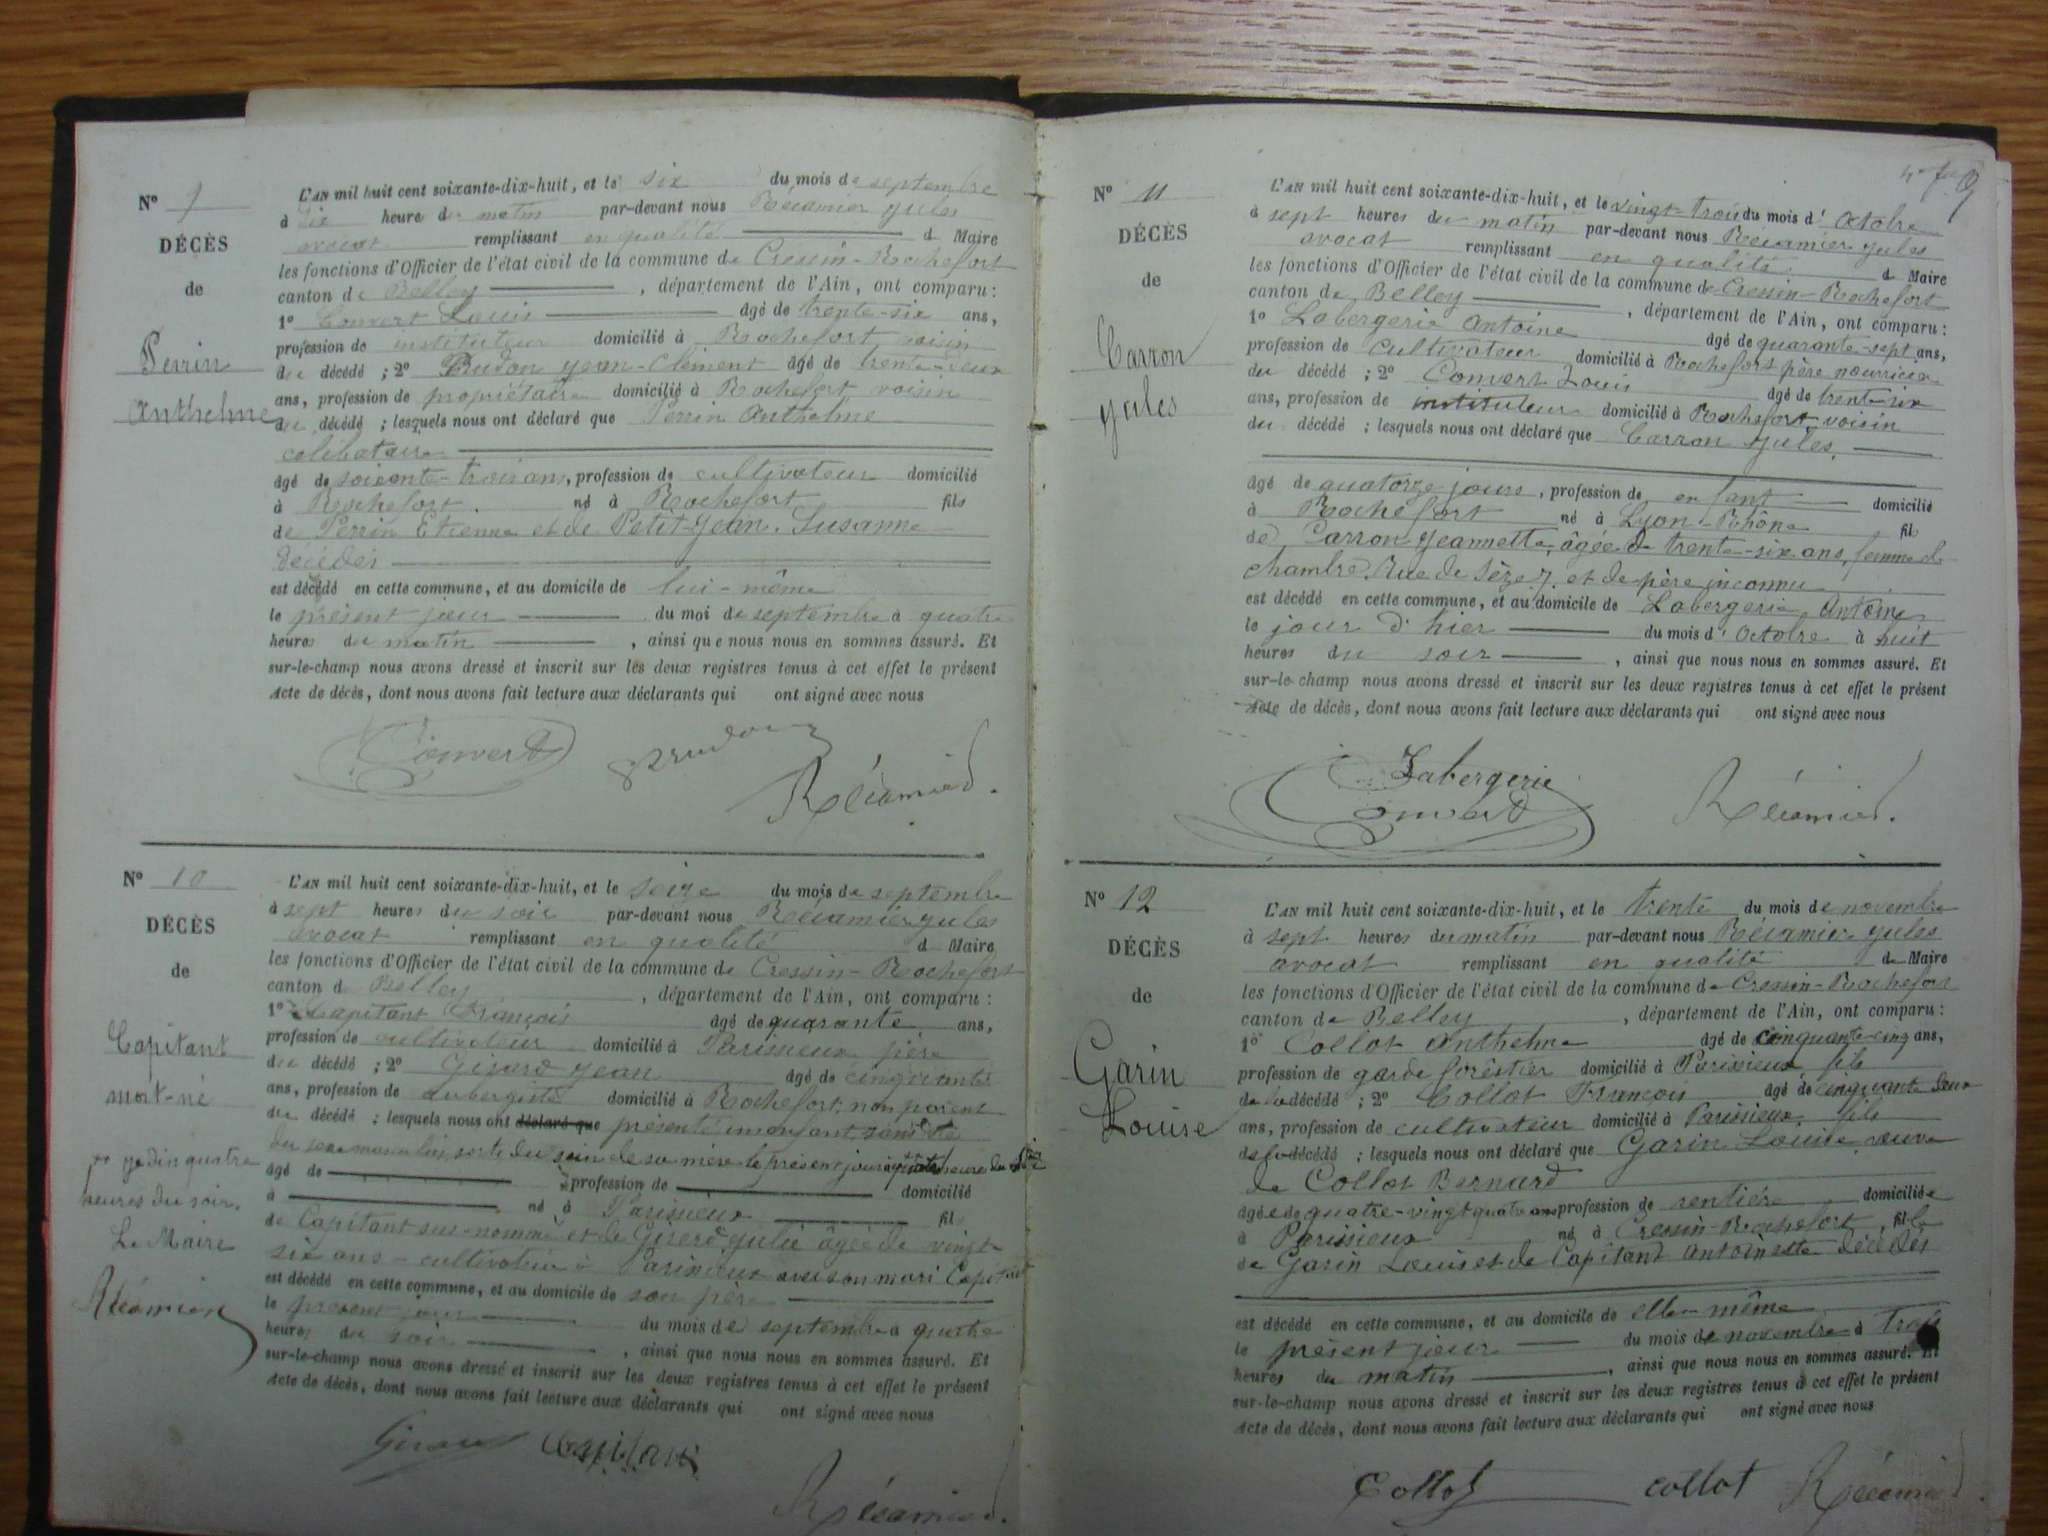 N° 9
DÉCÈS
de
Perrin
Anthelme
L'AN mil huit cent soixante-dix-huit, et le six du mois de septembre
à dix heure du matin par-devant nous Récamier Jules
avocat remplissant en qualité d Maire
les fonctions d'Officier de l'état civil de la commune de Cressin-Rochefort
canton de Belley, département de l'Ain, ont comparu :
1° Convert Louis âgé de trente-six ans,
profession de instituteur domicilié à Rochefort voisin
du décédé ; 2° Prudon Jean-Clément âgé de trente-deux
ans, profession de propriétaire domicilié à Rochefort voisin
du décédé ; lesquels nous ont déclaré que Perrin Anthelme
célibataire
âgé de soixante-trois ans, profession de cultivateur domicilié
à Rochefort né à Rochefort fils
de Perrin Etienne et de Petit-Jean Susanne
décédés
est décédé en cette commune, et au domicile de lui-même
le présent jour du moi de septembre à quatre
heures du matin, ainsi que nous nous en sommes assuré. Et
sur-le-champ nous avons dressé et inscrit sur les deux registres tenus à cet effet le présent
Acte de décès, dont nous avons fait lecture aux déclarants qui ont signé avec nous
Convert Prudon
Récamier
N° 10
DÉCÈS
de
Capitant
mort-né
heures du soir.
Le Maire
Récamier
L'AN mil huit cent soixante-dix-huit, et le seize du mois de septembre
à sept heures du soir par-devant nous Récamier Jules
avocat remplissant en qualité d Maire
les fonctions d'Officier de l'état civil de la commune de Cressin-Rochefort
canton d Belley, département de l'Ain, ont comparu :
1° Capitant François âgé de quarante ans,
profession de cultivateur domicilié à Parissieux père
du décédé ; 2° Girard Jean âgé de cinquante
ans, profession de aubergiste domicilié à Rochefort non parent
du décédé ; lesquels nous ont déclaré que présenté un enfant sans vie
du sexe masculin, sorti du sein de sa mère le présent jour à quatre heures du soir
âgé de profession de domicilié
à né à Parissieux fil
de Capitant sus-nommé et de Girerd Julie âgée de vingt-
six ans - à Parissieux avec son mari Capitant
est décédé en cette commune, et au domicile de son père
le présent jour du mois de septembre à quatre
heures du soir, ainsi que nous nous en sommes assuré. Et
sur-le-champ nous avons dressé et inscrit sur les deux registres tenus à cet effet le présent
Acte de décès, dont nous avons fait lecture aux déclarants qui ont signé avec nous
Capitant
Récamier
N° 11
DÉCÈS
de
Carron
Jules
L'AN mil huit cent soixante-dix-huit, et le vingt-trois du mois d'octobre
à sept heures du matin par-devant nous Récamier Jules
avocat remplissant en qualité d Maire
les fonctions d'Officier de l'état civil de la commune de Cressin-Rochefort
canton de Belley, département de l'Ain, ont comparu :
1° Labergerie Antoine âgé de quarante-sept ans,
profession de cultivateur domicilié à Rochefort père nourricier
du décédé ; 2° Convert Louis âgé de trente-six
ans, profession de instituteur domicilié à Rochefort voisin
du décédé ; lesquels nous ont déclaré que Carron Jules
âgé de quatorze jours, profession de enfant domicilié
à Rochefort né à Lyon-Rhône fil
de Carron Jeannette, âgée de trente-six ans, femme de
chambre, Rue de Sèze 7, et de père inconnu
est décédé en cette commune, et au domicile de Labergerie Antoine
le jour d'hier du mois d'octobre à huit
heures du soir, ainsi que nous nous en sommes assuré. Et
sur-le-champ nous avons dressé et inscrit sur les deux registres tenus à cet effet le présent
Acte de décès, dont nous avons fait lecture aux déclarants qui ont signé avec nous
Labergerie
Convert Récamier
N° 12
DÉCÈS
de
Garin
Louise
L'AN mil huit cent soixante-dix-huit, et le trente du mois de novembre
à sept heures du matin par-devant nous Récamier Jules
avocat remplissant en qualité de Maire
les fonctions d'Officier de l'état civil de la commune de Cressin-Rochefort
canton de Belley, département de l'Ain, ont comparu :
1° Collot Anthelme âgé de cinquante-cinq ans,
profession de garde forestier domicilié à Parissieux fils
de la décédé ; 2° Collot François âgé de cinquante deux
ans, profession de cultivateur domicilié à Parissieux fils
de la décédé ; lesquels nous ont déclaré que Garin Louise veuve
de Collot Bernard
âgée de quatre-vingt quatre ans profession de rentière domiciliée
à Parissieux né à Cressin-Rochefort, fille
de Garin Louis et de Capitant Antoinette décédés
est décédé en cette commune, et au domicile de elle-même
le présent jour du mois de novembre à trois
heures du matin, ainsi que nous nous en sommes assuré. Et
sur-le-champ nous avons dressé et inscrit sur les deux registres tenus à cet effet le présent
Acte de décès, dont nous avons fait lecture aux déclarants qui ont signé avec nous
Collot collot Récamier